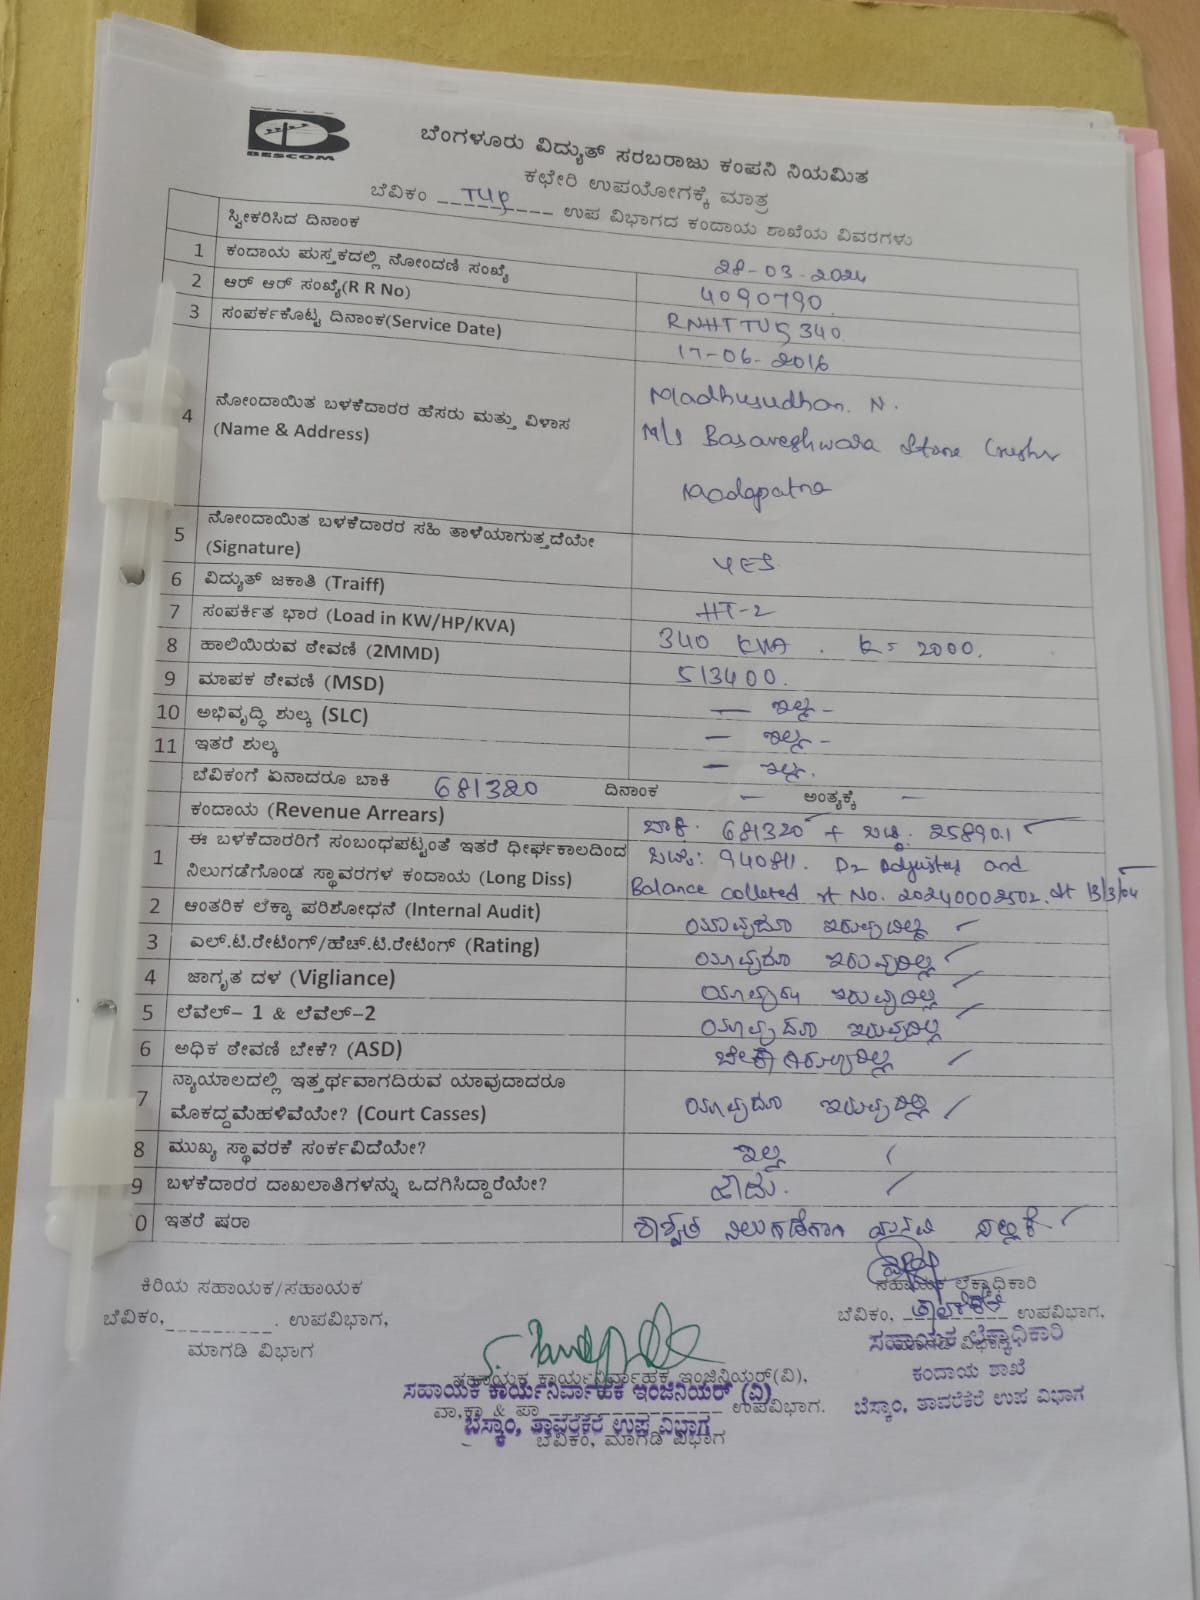 BESCOM
ಬೆಂಗಳೂರು ವಿದ್ಯುತ್ ಸರಬರಾಜು ಕಂಪನಿ ನಿಯಮಿತ
ಕಛೇರಿ ಉಪಯೋಗಕ್ಕೆ ಮಾತ್ರ
ಬೆವಿಕಂ ಉಪ ವಿಭಾಗದ ಕಂದಾಯ ಶಾಖೆಯ ವಿವರಗಳು
ಸ್ವೀಕರಿಸಿದ ದಿನಾಂಕ 28-03-2024
1 ಕಂದಾಯ ಪುಸ್ತಕದಲ್ಲಿ ನೋಂದಣಿ ಸಂಖ್ಯೆ 4090790
2 ಆರ್ ಆರ್ ಸಂಖ್ಯೆ(R R No) RNHTTUG340
3 ಸಂಪರ್ಕಕೊಟ್ಟ ದಿನಾಂಕ(Service Date) 17-06-2016
4 ನೋಂದಾಯಿತ ಬಳಕೆದಾರರ ಹೆಸರು ಮತ್ತು ವಿಳಾಸ (Name & Address)
Madhusudhan. N.
M/s Basaveshwara Stone Crusher
Madapatna
5 ನೋಂದಾಯಿತ ಬಳಕೆದಾರರ ಸಹಿ ತಾಳೆಯಾಗುತ್ತದೆಯೇ (Signature) YES
6 ವಿದ್ಯುತ್ ಜಕಾತಿ (Traiff) HT-2
7 ಸಂಪರ್ಕಿತ ಭಾರ (Load in KW/HP/KVA) 340 KVA . K= 2000.
8 ಹಾಲಿಯಿರುವ ಠೇವಣಿ (2MMD) 513400.
9 ಮಾಪಕ ಠೇವಣಿ (MSD) — ಇಲ್ಲ -
10 ಅಭಿವೃದ್ಧಿ ಶುಲ್ಕ (SLC) — ಇಲ್ಲ -
11 ಇತರೆ ಶುಲ್ಕ — ಇಲ್ಲ.
ಬೆವಿಕಂಗೆ ಏನಾದರೂ ಬಾಕಿ 681320 ದಿನಾಂಕ — ಅಂತ್ಯಕ್ಕೆ —
ಕಂದಾಯ (Revenue Arrears) ಬಾಕಿ: 681320 + ಬಡ್ಡಿ: 258901
1 ಈ ಬಳಕೆದಾರರಿಗೆ ಸಂಬಂಧಪಟ್ಟಂತೆ ಇತರೆ ಧೀರ್ಘಕಾಲದಿಂದ ನಿಲುಗಡೆಗೊಂಡ ಸ್ಥಾವರಗಳ ಕಂದಾಯ (Long Diss)
ಒಟ್ಟು: 940811. D2 Adjusted and
Balance colleted rt No. 20240002502. dt 13/3/04
2 ಆಂತರಿಕ ಲೆಕ್ಕಾ ಪರಿಶೋಧನೆ (Internal Audit) ಯಾವುದೂ ಇರುವುದಿಲ್ಲ
3 ಎಲ್.ಟಿ.ರೇಟಿಂಗ್/ಹೆಚ್.ಟಿ.ರೇಟಿಂಗ್ (Rating) ಯಾವುದೂ ಇರುವುದಿಲ್ಲ
4 ಜಾಗೃತ ದಳ (Vigliance) ಯಾವುದು ಇರುವುದಿಲ್ಲ
5 ಲೆವೆಲ್– 1 & ಲೆವೆಲ್–2 ಯಾವುದೂ ಇರುವುದಿಲ್ಲ
6 ಅಧಿಕ ಠೇವಣಿ ಬೇಕೆ? (ASD) ಬೇಕಾಗಿರುವುದಿಲ್ಲ
7 ನ್ಯಾಯಾಲದಲ್ಲಿ ಇತ್ತರ್ಥವಾಗದಿರುವ ಯಾವುದಾದರೂ ಮೊಕದ್ದಮೆಹಳಿವೆಯೇ? (Court Casses) ಯಾವುದೂ ಇರುವುದಿಲ್ಲ
8 ಮುಖ್ಯ ಸ್ಥಾವರಕೆ ಸಂರ್ಕವಿದೆಯೇ? ಇಲ್ಲ
9 ಬಳಕೆದಾರರ ದಾಖಲಾತಿಗಳನ್ನು ಒದಗಿಸಿದ್ದಾರೆಯೇ? ಹೌದು.
0 ಇತರೆ ಷರಾ ಶಾಶ್ವತ ನಿಲುಗಡೆಗಾಗಿ
ಕಿರಿಯ ಸಹಾಯಕ/ಸಹಾಯಕ
ಬೆವಿಕಂ, ಉಪವಿಭಾಗ,
ಮಾಗಡಿ ವಿಭಾಗ
ಸಹಾಯಕ ಕಾರ್ಯನಿರ್ವಾಹಕ ಇಂಜಿನಿಯರ್(ವಿ),
ಸಹಾಯಕ ಕಾರ್ಯನಿರ್ವಾಹಕ ಇಂಜಿನಿಯರ್ (ವಿ)
ವಾ,ಕಾ & ಪಾ ಉಪವಿಭಾಗ.
ಬೆಸ್ಕಾಂ, ತಾವರೆಕೆರೆ ಉಪ ವಿಭಾಗ
ಬೆವಿಕಂ, ಮಾಗಡಿ ವಿಭಾಗ
ಸಹಾಯಕ ಲೆಕ್ಕಾಧಿಕಾರಿ
ಬೆವಿಕಂ, ತಾವರೆಕೆರೆ ಉಪವಿಭಾಗ,
ಸಹಾಯಕ ಲೆಕ್ಕಾಧಿಕಾರಿ
ಕಂದಾಯ ಶಾಖೆ
ಬೆಸ್ಕಾಂ, ತಾವರೆಕೆರೆ ಉಪ ವಿಭಾಗ